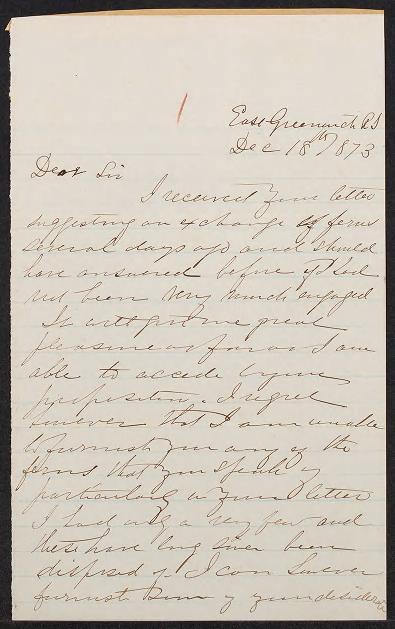 East Greenwich R I
Dec 18th 1873
Dear Sir
I received your letter
suggesting an exchange of ferns
several days ago and should
have answered before if I had
not been very much engaged
It will give me great
pleasure as far as I am
able to accede to your
proposition. I regret
however that I am unable
to furnish you any of the
ferns that you speak of
particularly in your letter
I had only a very few and
these have long since been
disposed of. I can however
furnish some of your desiderata